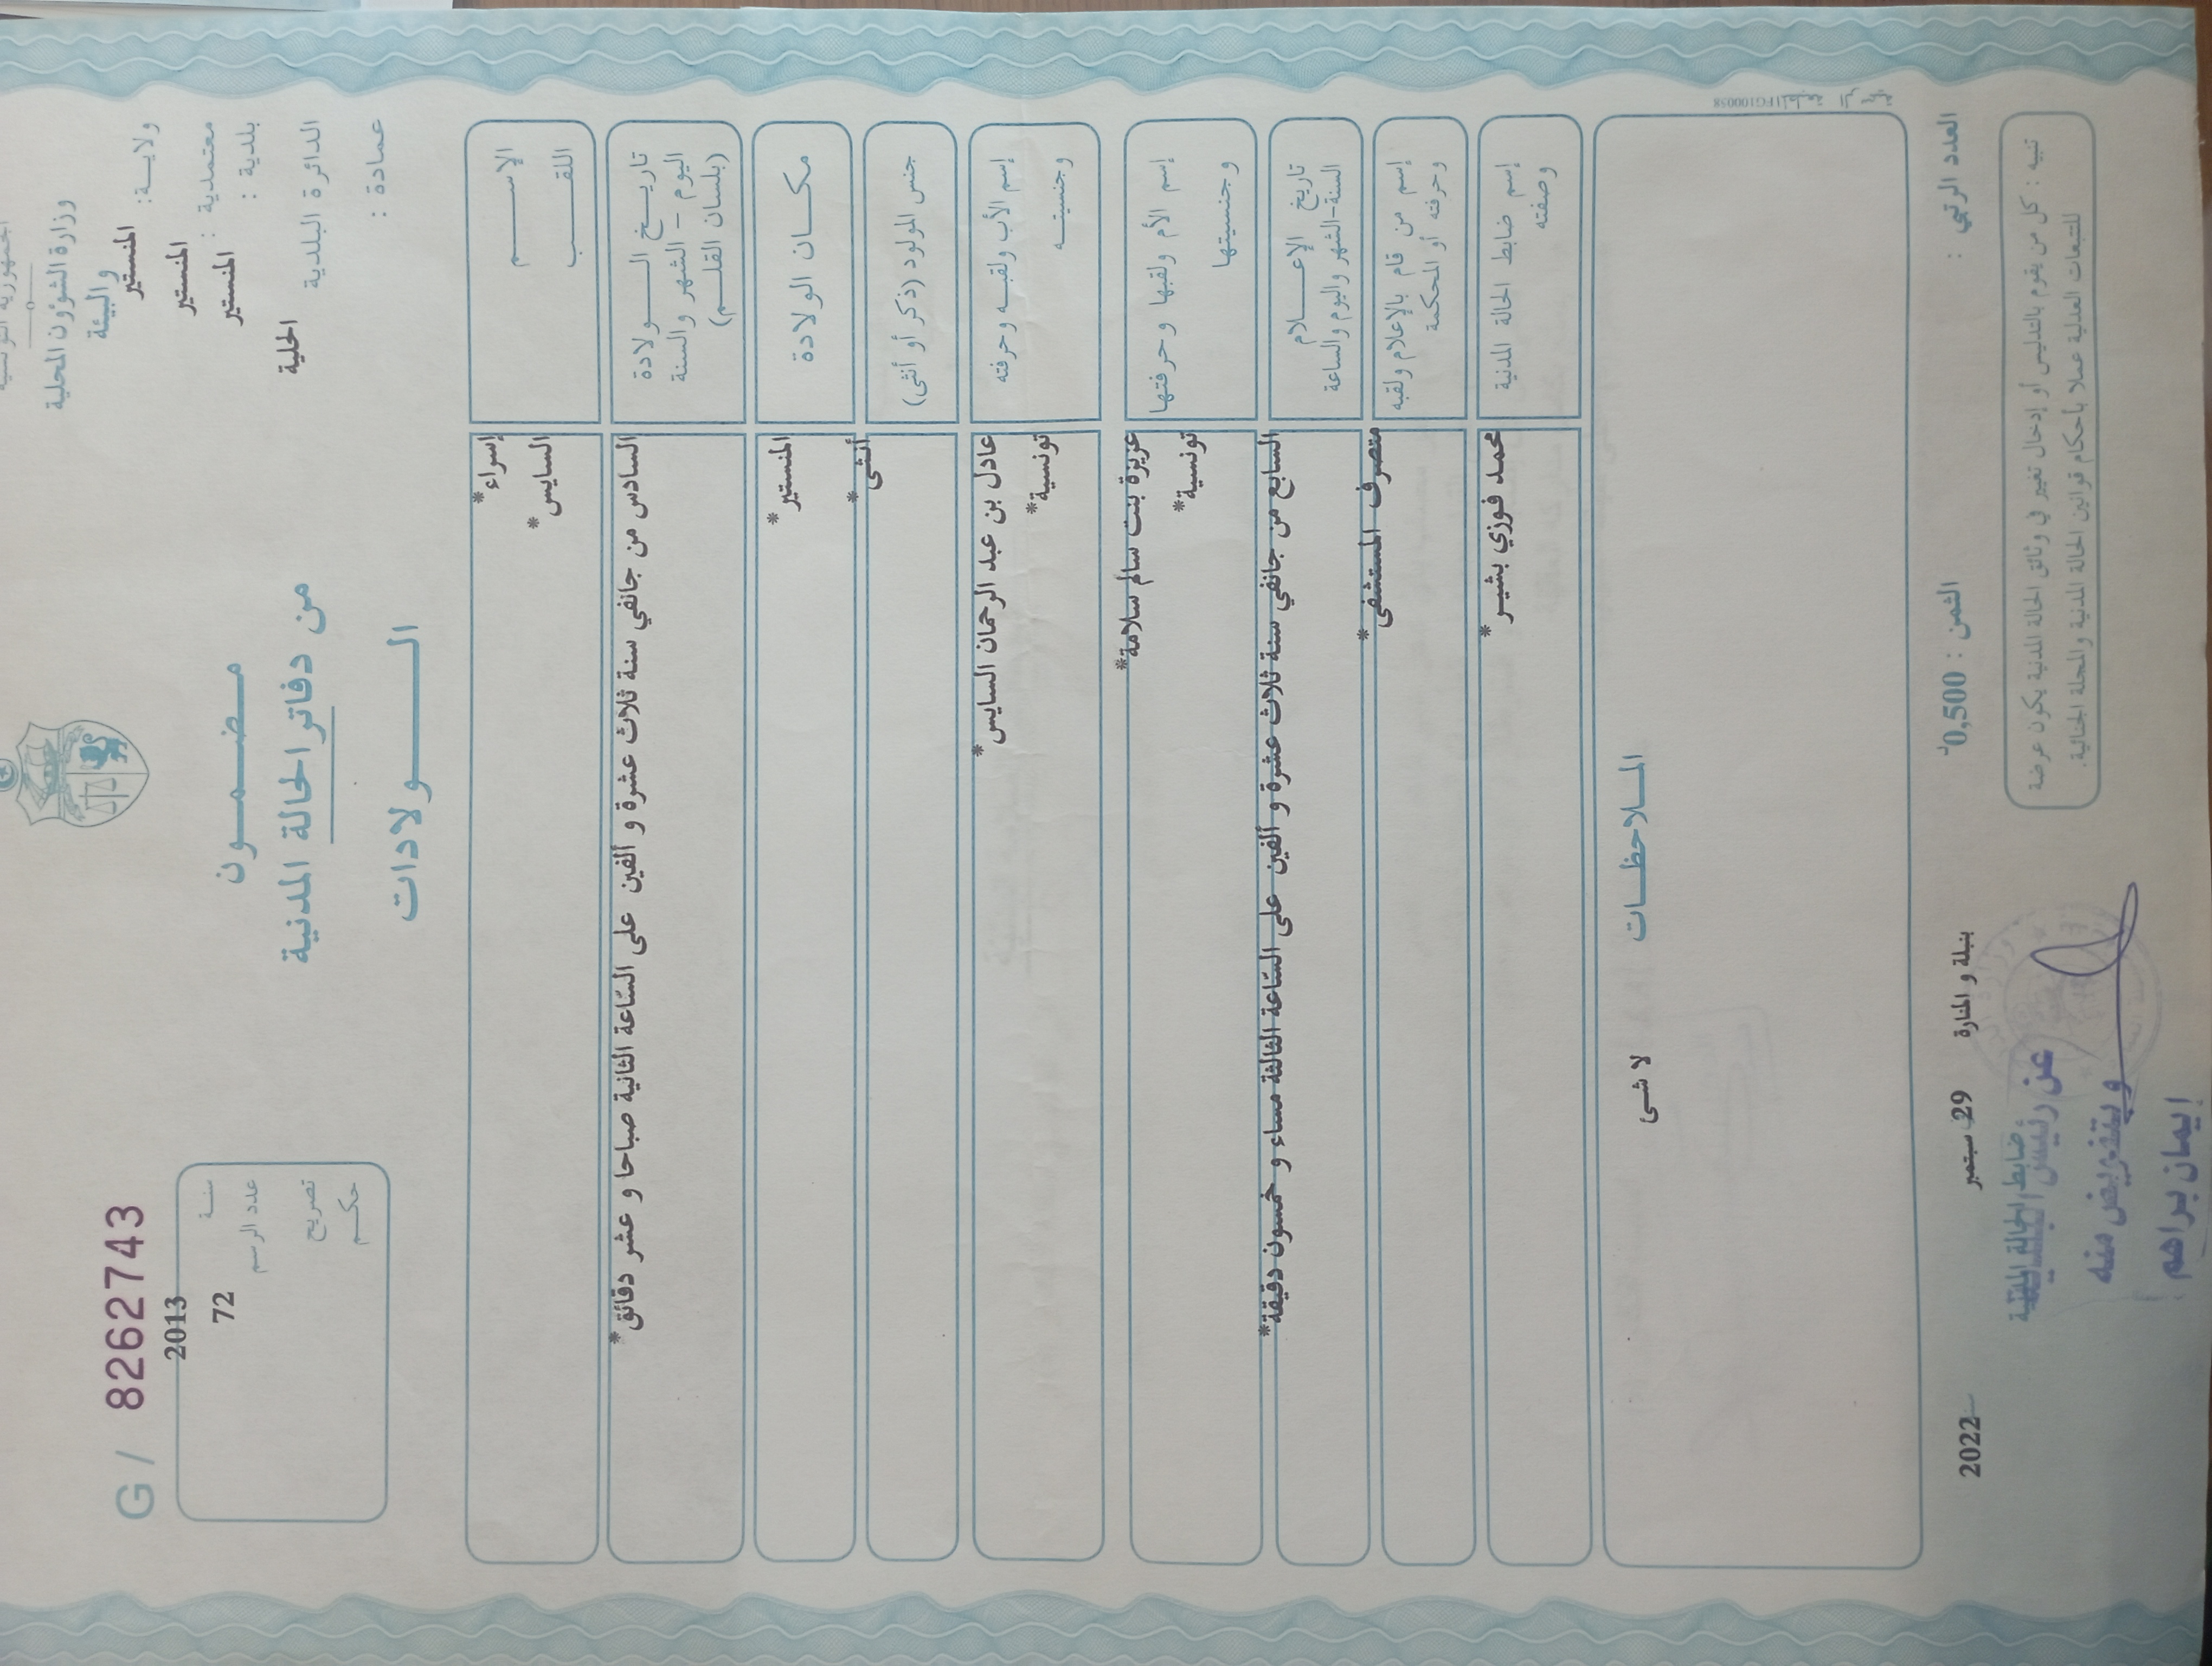 الجمهورية التونسية
وزارة الشؤون المحلية
والبيئة
ولايـــة: المنستير
معتمدية : المنستير
بلدية : المنستير
الدائرة البلدية الحلية
عمادة :
مـضـمـــون
من دفاتر الحالة المدنية
الــــولادات
G / 8262743
سنـــة 2013
عدد الرسم 72
تصريح
حكـــم
الإســـــم إسراء*
اللقـــــب السايس*
تاريـــخ الـــــولادة السادس من جانفي سنة ثلاث عشرة و ألفين على السّاعة الثانية صباحا و عشر دقائق*
اليوم - الشهر والسنة
(بلسان القلـــم)
مكــــان الولادة المنستير*
جنس المولود (ذكر أو أنثى) أنثى*
إسم الأب ولقبـــه وحرفته عادل بن عبد الرحمان السايس*
وجنسيتـــه تونسية*
إسم الأم ولقبها وحرفتهــا عزيزة بنت سالم سلامة*
وجنسيتهـا تونسية*
تاريخ الإعـــــلام السابع من جانفي سنة ثلاث عشرة و ألفين على السّاعة الثالثة مساء و خمسون دقيقة*
السنة-الشهر واليوم والساعة
إسم من قام بالإعلام ولقبه متصرف المستشفى*
وحرفته أو المحكمة
إسم ضابط الحالة المدنية محمد فوزي بشيـر*
وصفته
المــلاحظــات
لا شئ
IFG100058
العدد الرتبي :
الثمن : 0,500د
بنبلة و المنارة 29 سبتمبر 2022
تنبيه : كل من يقوم بالتدليس أو إدخال تغيير في وثائق الحالة المدنية يكون عرضة
للتتبعات العدلية عملا بأحكام قوانين الحالة المدنية والمجلة الجنائية.
ضابط الحالة المدنية
عن رئيس البلدية
وبتفويض منه
إيمان براهم